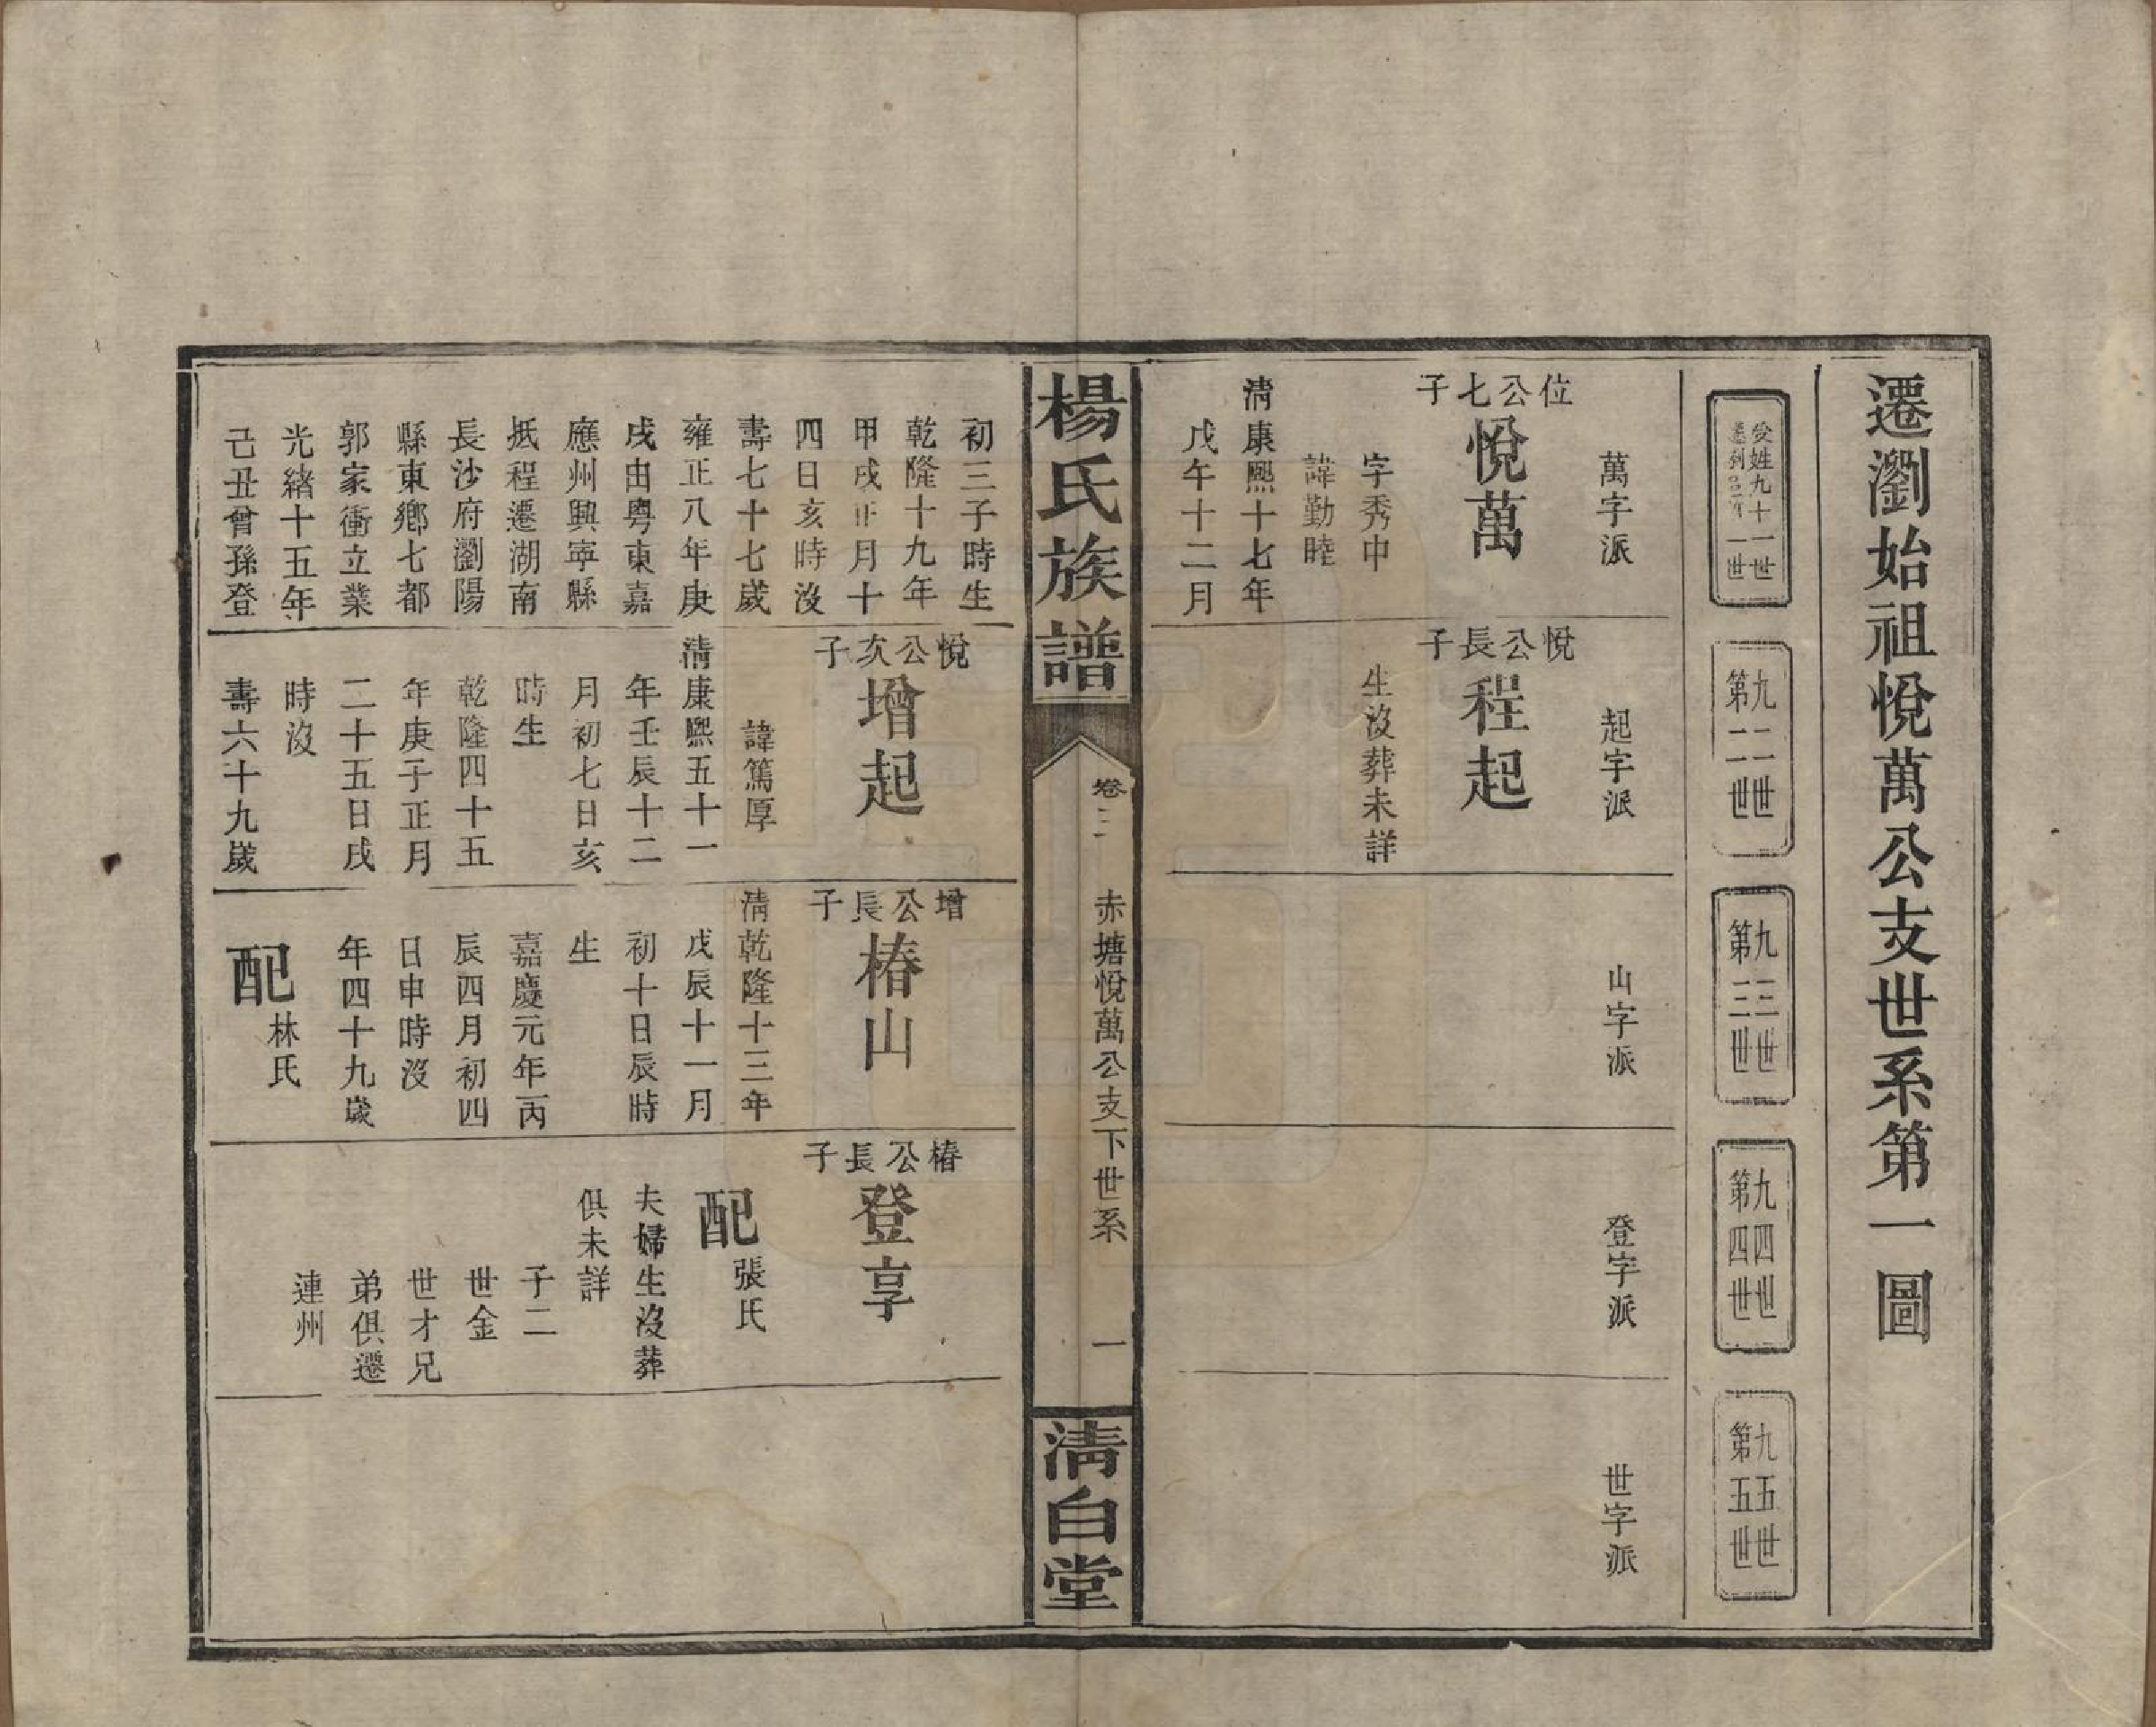 遷瀏始祖悅萬公支世系第一圖
受姓九十一世
遷瀏 一世
九二世
第二世
九三世
第三世
九四世
第四世
九五世
第五世
萬字派
位公七子
悅萬
字秀中
諱勤睦
清康熙十七年
戊午十二月
起字派
悅公長子
程起
生沒葬未詳
山字派
登字派
世字派
楊氏族譜
卷三
赤塘悅萬公支下世系
一
清白堂
初三子時生
乾隆十九年
甲戌正月十
四日亥時沒
壽七十七歲
雍正八年庚
戌由粵東嘉
應州興寧縣
抵程遷湖南
長沙府瀏陽
縣東鄉七都
郭家衝立業
光緒十五年
己丑曾孫登
悅公次子
增起
諱篤厚
清康熙五十一
年壬辰十二
月初七日亥
時生
乾隆四十五
年庚子正月
二十五日戌
時沒
壽六十九歲
增公長子
椿山
清乾隆十三年
戊辰十一月
初十日辰時
生
嘉慶元年丙
辰四月初四
日申時沒
年四十九歲
配林氏
椿公長子
登享
配張氏
夫婦生沒葬
俱未詳
子二
世金
世才兄
弟俱遷
連州